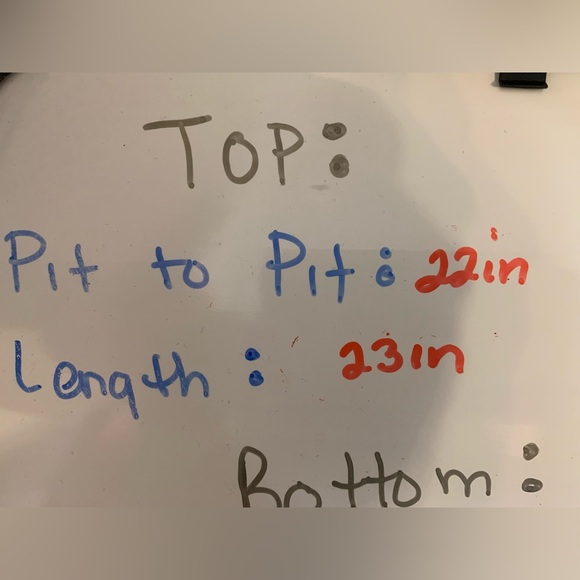 TOP:
Pit to Pit: 22in
Length: 23in
Bottom: